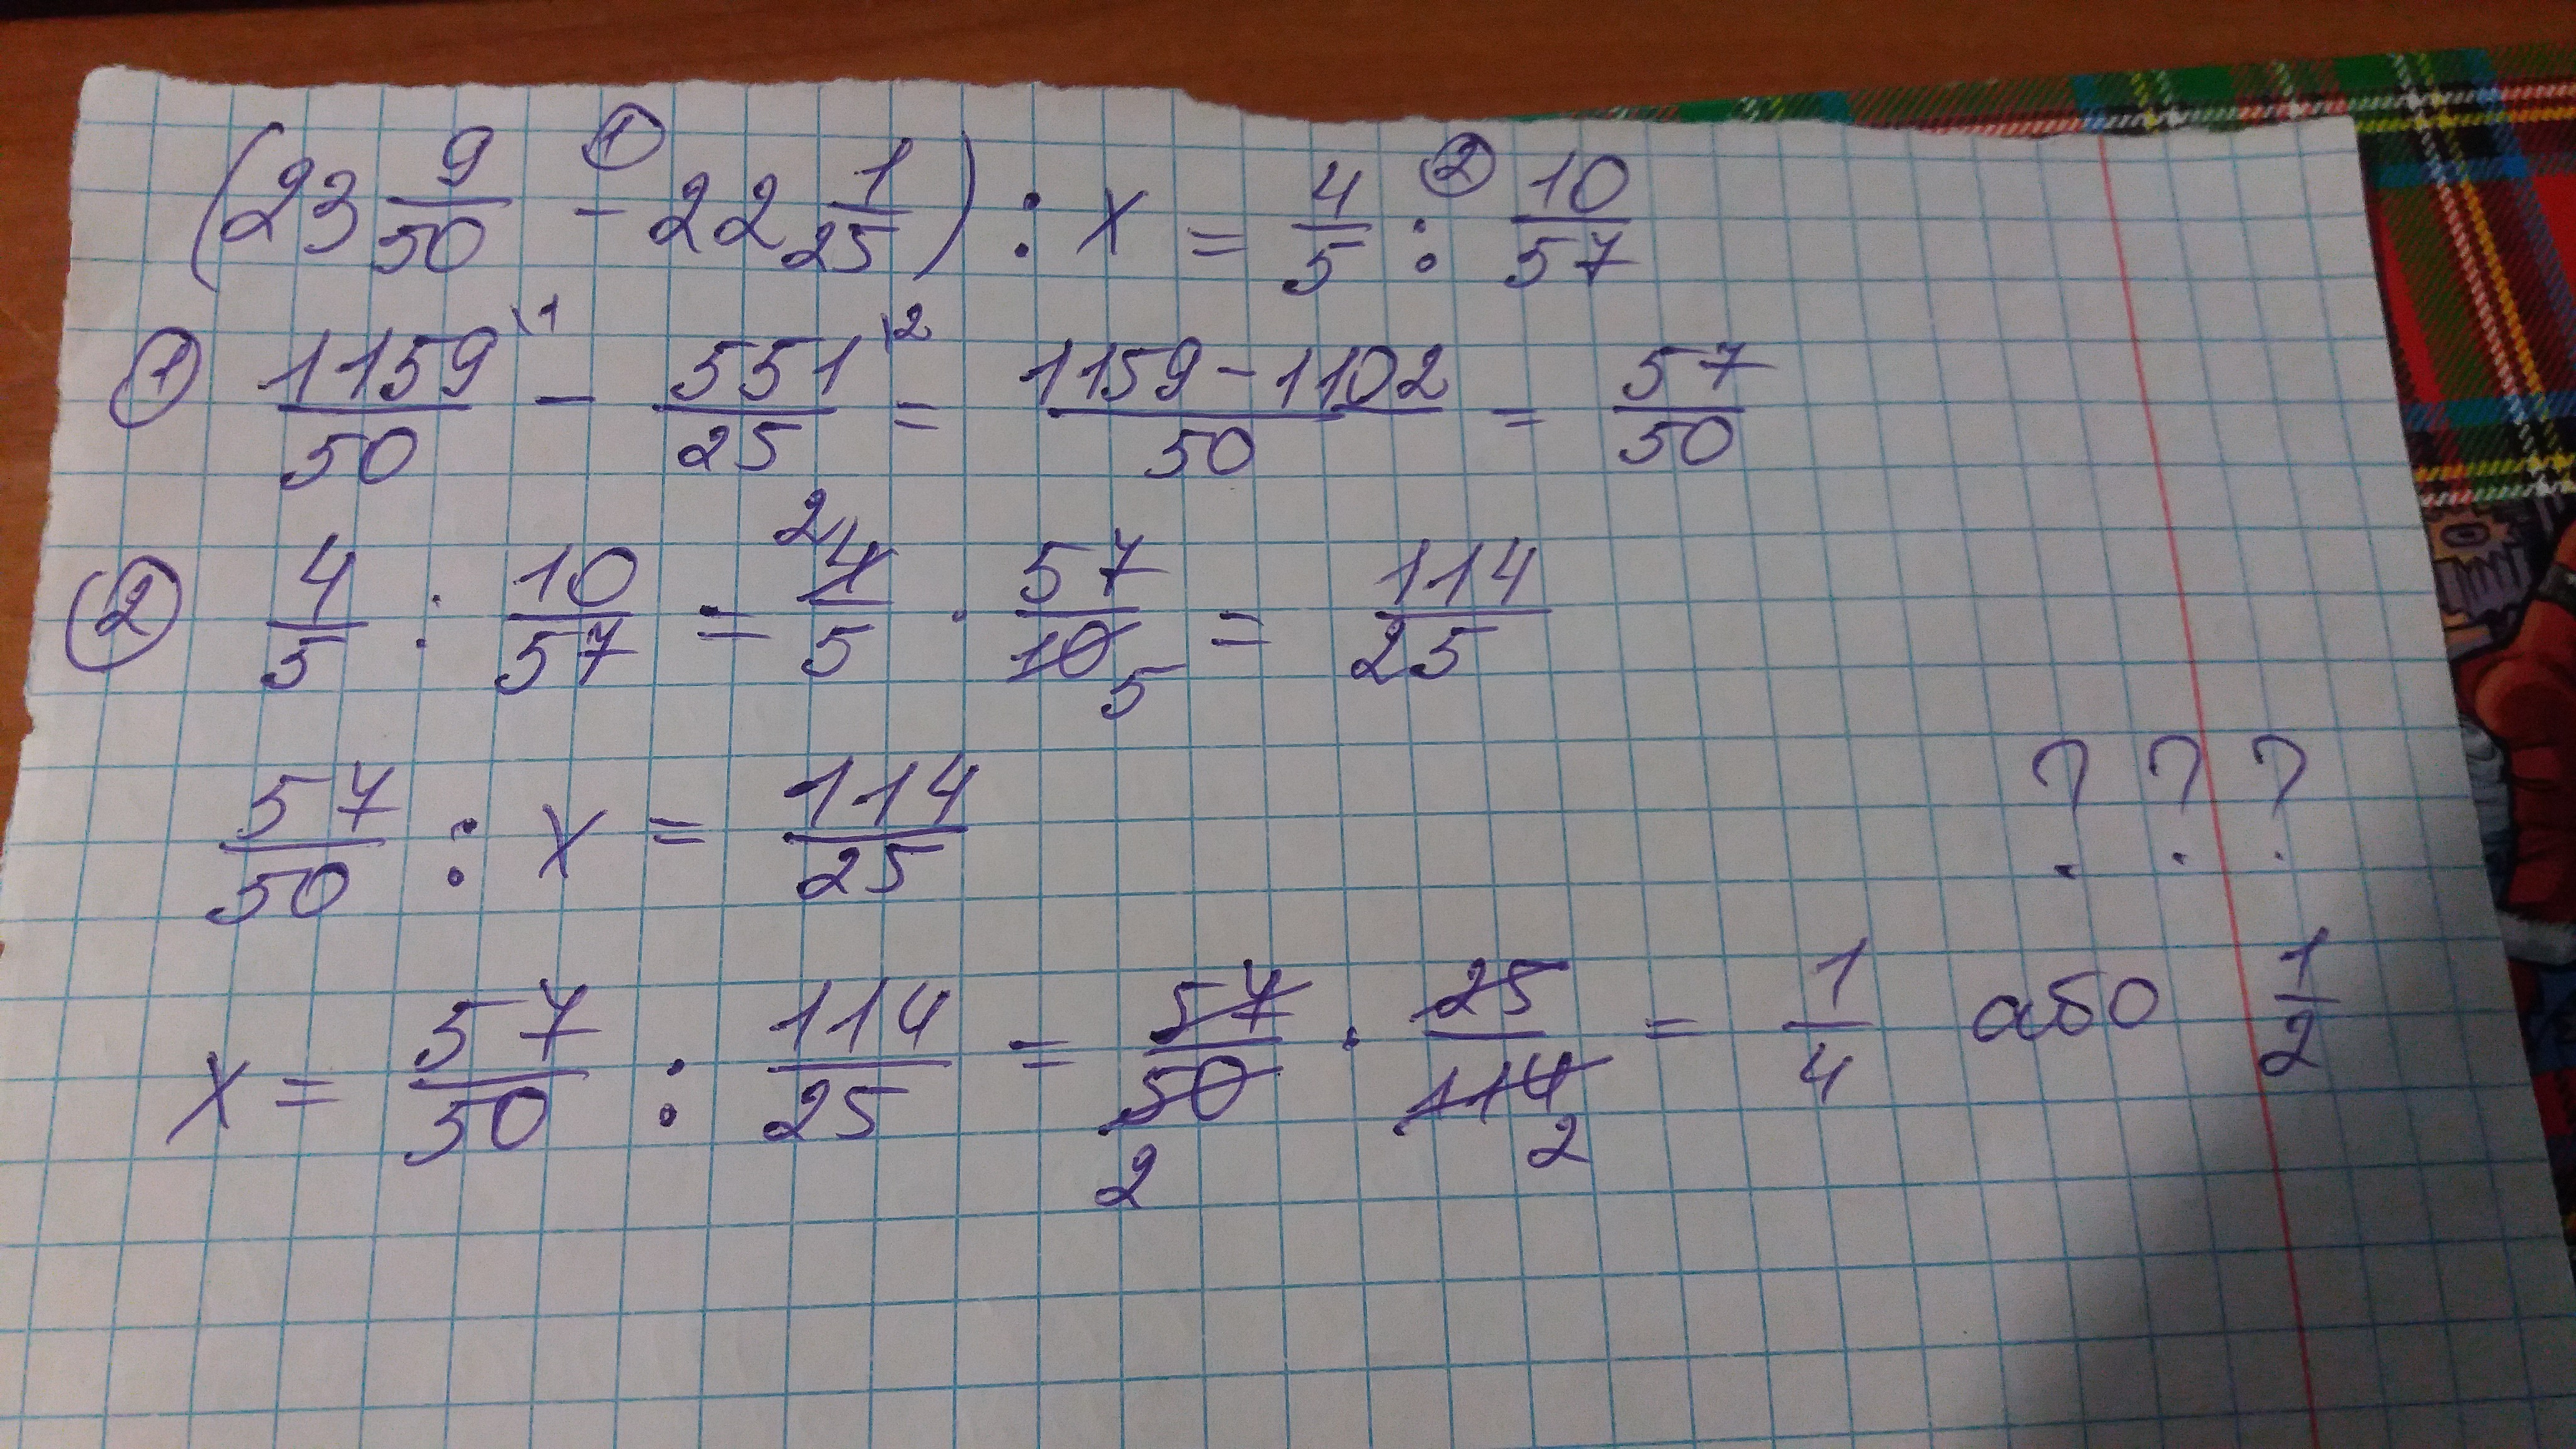 (23 9/50 - ① 22 1/25) : x = 4/5 : ② 10/57
① 1159\1/50 - 551\2/25 = 1159-1102/50 = 57/50
② 4/5 : 10/57 = 2 4/5 · 57/10 5 = 114/25
57/50 : x = 114/25 ? ? ?
x = 57/50 : 114/25 = 57/50 2 · 25/114 2 = 1/4 або 1/2